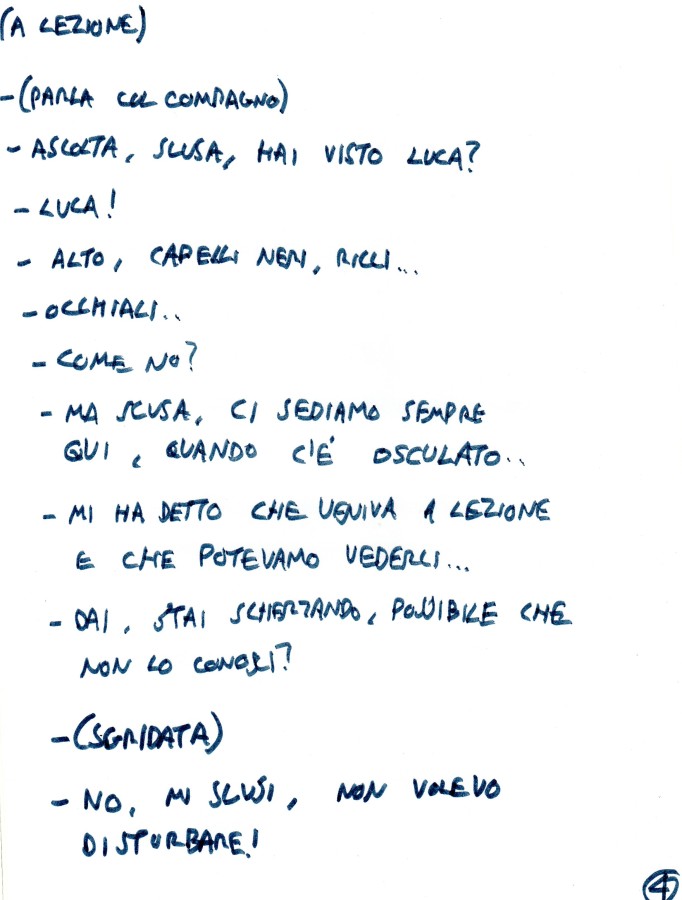 (A LEZIONE)
- (PARLA COL COMPAGNO)
- ASCOLTA, SCUSA, HAI VISTO LUCA?
- LUCA!
- ALTO, CAPELLI NERI, RICCI...
- OCCHIALI..
- COME NO?
- MA SCUSA, CI SEDIAMO SEMPRE
QUI, QUANDO C'È OSCULATO..
- MI HA DETTO CHE VENIVA A LEZIONE
E CHE POTEVAMO VEDERCI...
- DAI, STAI SCHERZANDO, POSSIBILE CHE
NON LO CONOSCI?
- (SGRIDATA)
- NO, MI SCUSI, NON VOLEVO
DISTURBARE!
4